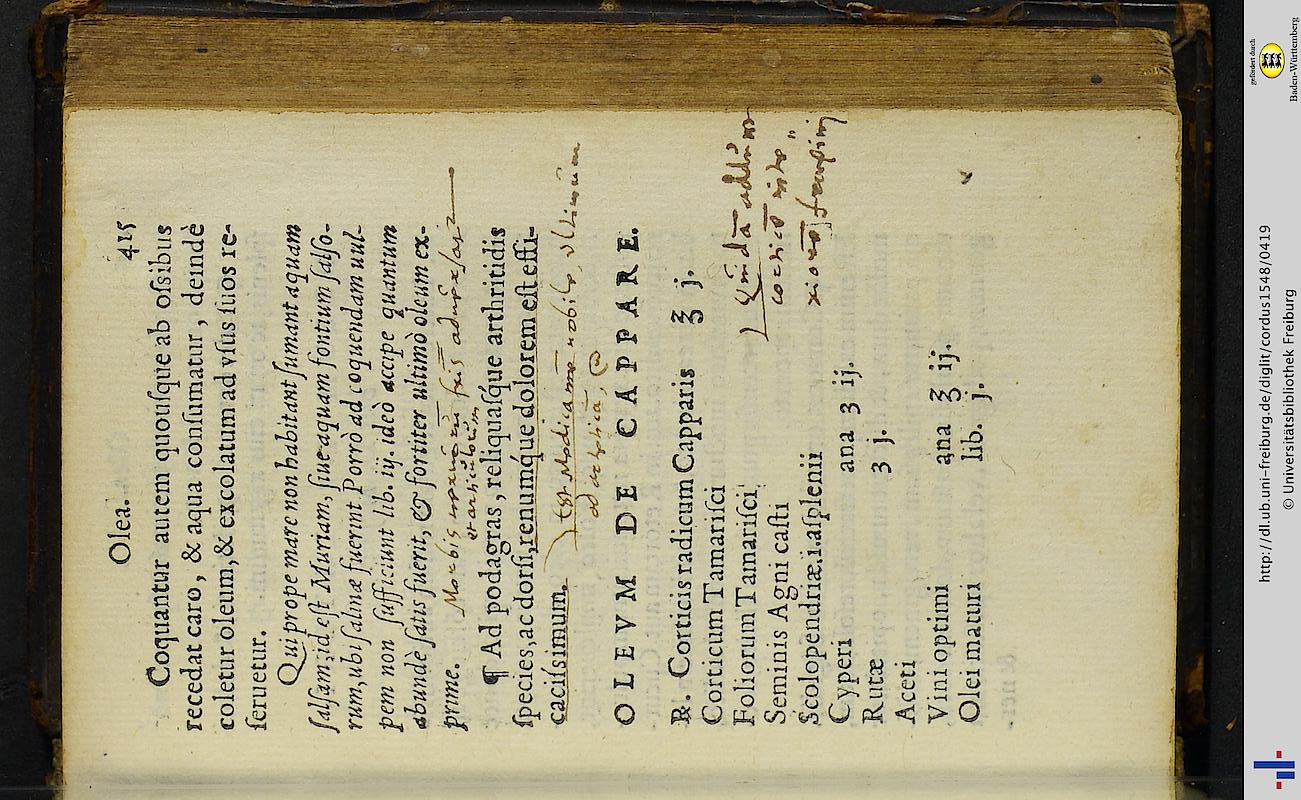 Olea. 415
Coquantur autem quouſque ab oſsibus
recedat caro, & aqua conſumatur, deindè
coletur oleum, & excolatum ad vſus ſuos re-
ſeruetur.
Qui prope mare non habitant ſumant aquam
ſalſam, id eſt Muriam, ſiue aquam fontium ſalſo-
rum, ubi ſalinæ fuerint. Porrò ad coquendam uul-
pem non ſufficiunt lib. iij. ideò accipe quantum
abundè ſatis fuerit, & fortiter ultimò oleum ex-
prime.
Morbis
¶ Ad podagras, reliquaſque arthritidis
ſpecies, ac dorſi, renumque dolorem eſt effi-
caciſsimum.
Est nobile
OLEVM DE CAPPARE.
℞. Corticis radicum Capparis ℥ j.
Corticum Tamariſci
Foliorum Tamariſci
Seminis Agni caſti
Scolopendriæ.i.aſplenii
Cyperi ana ʒ ij.
Rutæ ʒ j.
Aceti
Vini optimi ana ℥ ij.
Olei maturi lib. j.
http://dl.ub.uni-freiburg.de/diglit/cordus1548/0419
© Universitätsbibliothek Freiburg
gefördert durch
Baden-Württemberg